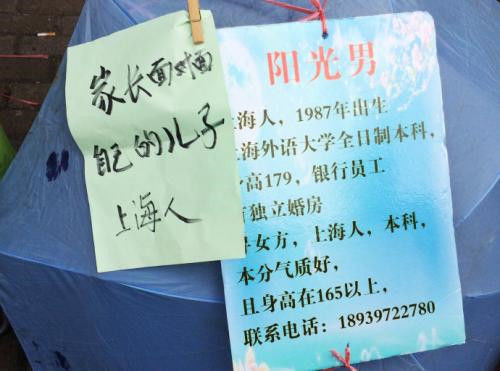 家长面对面
自己的儿子
上海人
阳光男
海人，1987年出生
海外语大学全日制本科，
高179，银行员工
独立婚房
女方，上海人，本科，
本分气质好，
且身高在165以上，
联系电话：18939722780